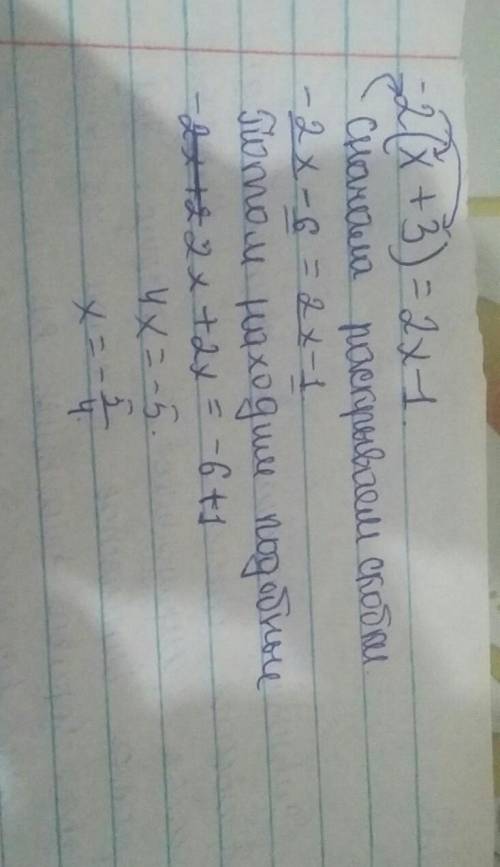 -2(x+3)=2x-1.
Сначала раскрываем скобки
-2x-6=2x-1
Потом находим подобные
2x+2x=-6+1
4x=-5.
x=-5/4.